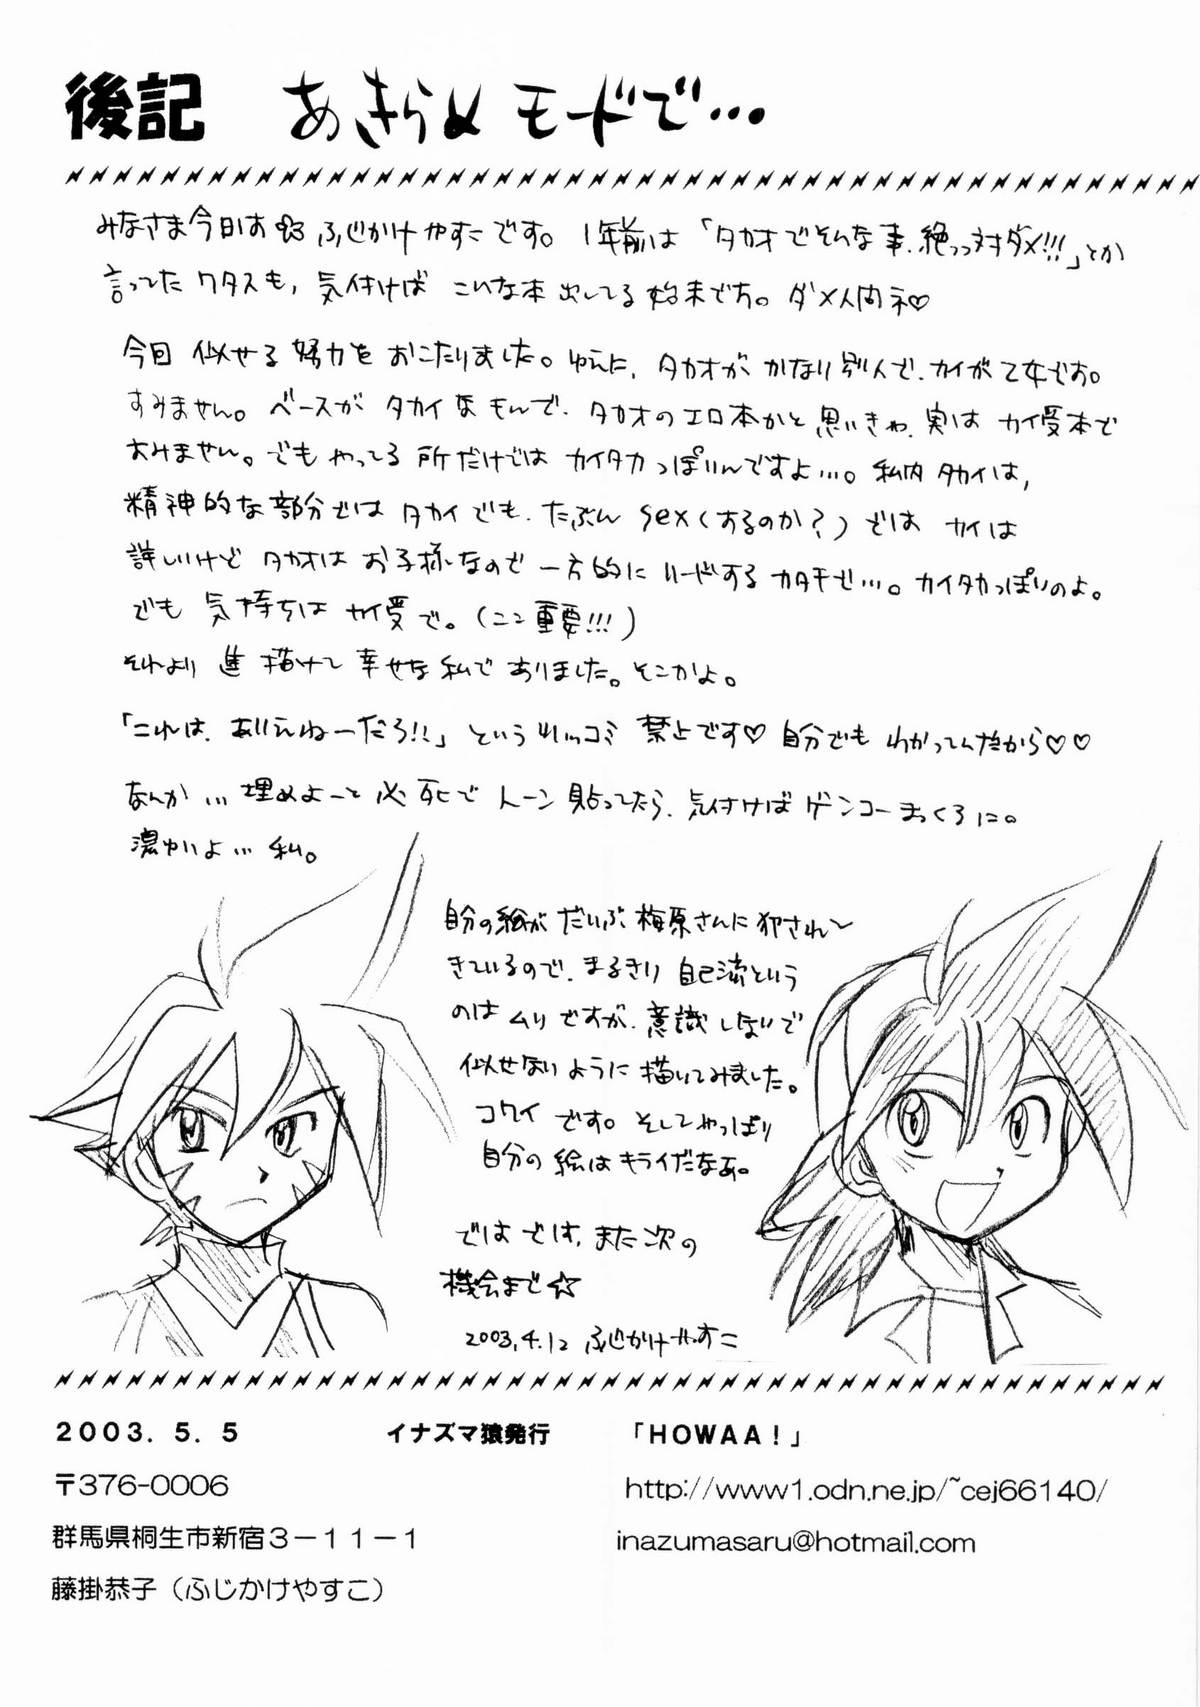 後記　あきらめモードで…
みなさま今日はふじかけやすこです。1年前は「タカオでそんな事、絶っっ対ダメ!!!」とか
言ってたワタスも、気付けばこんな本出してる始末です。ダメ人間ネ♡
今回似せる努力をおこたりました。ゆえに、タカオがかなり別人で、カイが乙女です。
すみません。ベースがタカイなもんで、タカオのエロ本かと思いきゃ、実はカイ受本で
すみません。でもやってる所だけではカイタカっぽいんですよ…。私内タカイは、
精神的な部分ではタカイでも、たぶんsex(するのか?)ではカイは
詳しいけどタカオはお子様なので一方的にリードするカタチで…。カイタカっぽいのよ。
でも気持ちはカイ受で。(ココ重要!!!)
それより進描けて幸せな私でありました。そこかよ。
「これは、ありえねーだろ!!」というツッコミ禁止です♡自分でもわかってんだから♡♡
なんか…埋めよーと必死でトーン貼ってたら、気付けばゲンコーまっくろに。
濃ゆいよ…私。
自分の絵がだいぶ梅原さんに犯されて
きているので、まるきり自己流という
のはムリですが、意識しないで
似せないように描いてみました。
コワイです。そしてやっぱり
自分の絵はキライだなあ。
ではでは、また次の
機会まで☆
2003.4.12 ふじかけやすこ
2003.5.5　イナズマ猿発行　「HOWAA!」
〒376-0006　http://www1.odn.ne.jp/~cej66140/
群馬県桐生市新宿3-11-1　inazumasaru@hotmail.com
藤掛恭子（ふじかけやすこ）